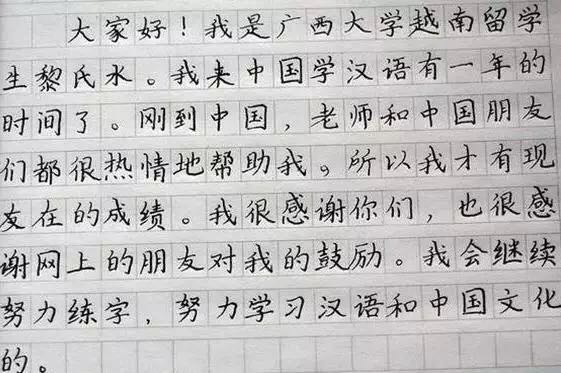 大家好！我是广西大学越南留学
生黎氏水。我来中国学汉语有一年的
时间了。刚到中国，老师和中国朋友
们都很热情地帮助我。所以我才有现
友在的成绩。我很感谢你们，也很感
谢网上的朋友对我的鼓励。我会继续
努力练字，努力学习汉语和中国文化
的。